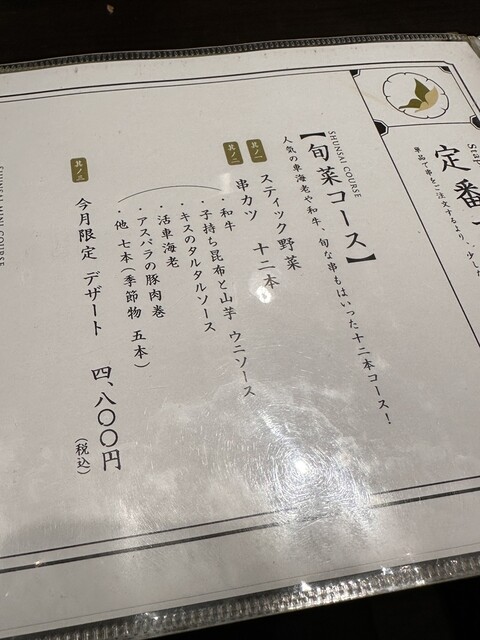 定番
単品で串をご注文するより、少し
【旬菜コース】
SHUNSAI COURSE
人気の車海老や和牛、旬な串もはいった十二本コース!
其ノ一
スティック野菜
其ノ二
串カツ 十二本
・和牛
・子持ち昆布と山芋 ウニソース
・キスのタルタルソース
・活車海老
・アスパラの豚肉巻
・他 七本(季節物 五本)
其ノ三
今月限定 デザート
四、八〇〇円
(税込)
COURSE